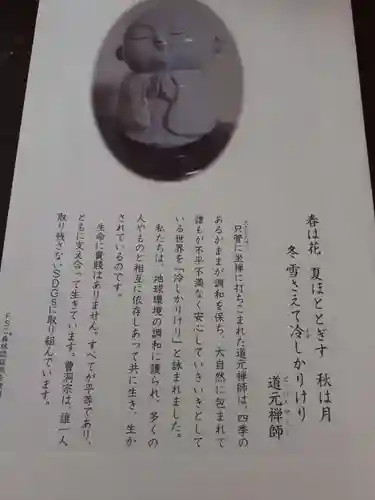 春は花 夏ほととぎす 秋は月
冬雪さえて冷しかりけり
道元禅師
只管に坐禅に打ちこまれた道元禅師は、四季の
あるがままが調和を保ち、大自然に包まれて
誰もが不平不満なく安心していきいきとして
いる世界を「冷しかりけり」と詠まれました。
私たちは、地球環境の調和に護られ、多くの
人やものと相互に依存しあって共に生き、生か
されているのです。
生命に貴賤はありません。すべてが平等であり、
ともに支え合って生きています。曹洞宗は、誰一人
取り残さないSDGsに取り組んでいます。